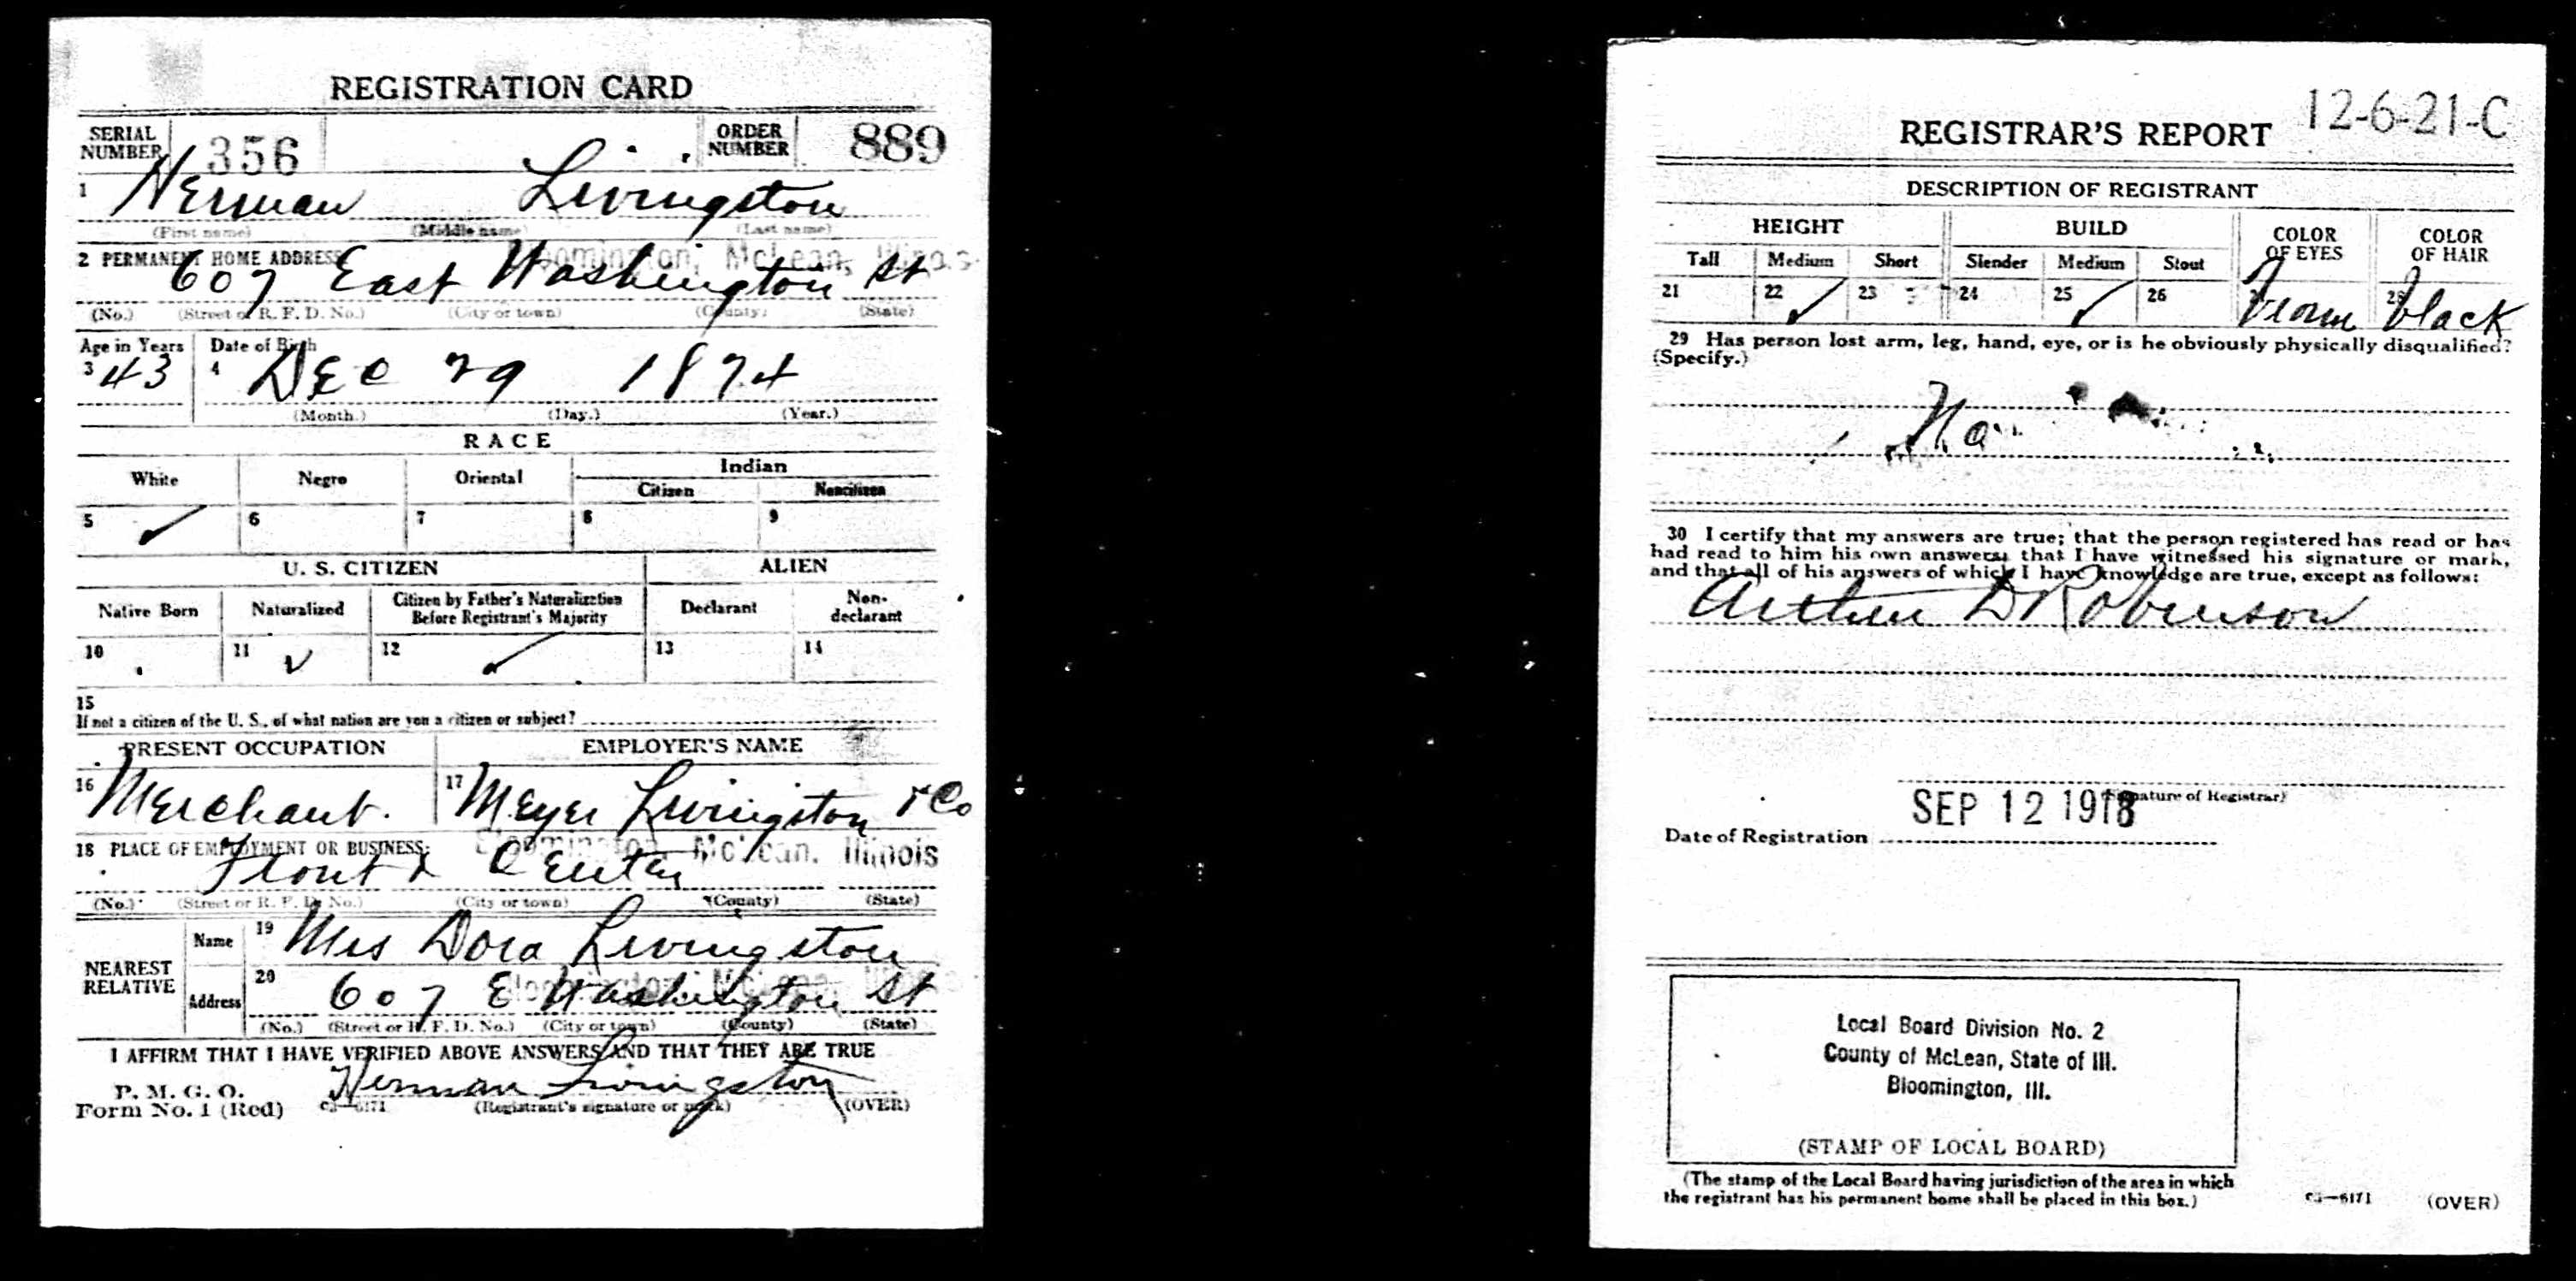 REGISTRATION CARD
SERIAL NUMBER 356 ORDER NUMBER 889
1 Herman Livingston
(First name) (Middle name) (Last name)
2 PERMANENT HOME ADDRESS Bloomington, McLean, Illinois
607 East Washington St
(No.) (Street or R. F. D. No.) (City or town) (County) (State)
Age in Years Date of Birth
3 43 4 Dec 29 1874
(Month.) (Day.) (Year.)
RACE
White Negro Oriental Indian
Citizen Noncitizen
5 ✓ 6 7 8 9
U. S. CITIZEN ALIEN
Native Born Naturalized Citizen by Father's Naturalization Before Registrant's Majority Declarant Non-declarant
10 11 ✓ 12 ✓ 13 14
15
If not a citizen of the U. S., of what nation are you a citizen or subject?
PRESENT OCCUPATION EMPLOYER'S NAME
16 Merchant. 17 Meyer Livingston & Co
18 PLACE OF EMPLOYMENT OR BUSINESS: Bloomington, McLean, Illinois
Front & Center
(No.) (Street or R. F. D. No.) (City or town) (County) (State)
NEAREST RELATIVE
Name 19 Mrs Dora Livingston
Address 20 607 E Washington St Bloomington, McLean, Illinois
(No.) (Street or R. F. D. No.) (City or town) (County) (State)
I AFFIRM THAT I HAVE VERIFIED ABOVE ANSWERS AND THAT THEY ARE TRUE
P. M. G. O.
Form No. 1 (Red) c3—6171 Herman Livingston
(Registrant's signature or mark) (OVER)
12-6-21-C
REGISTRAR'S REPORT
DESCRIPTION OF REGISTRANT
HEIGHT BUILD COLOR OF EYES COLOR OF HAIR
Tall Medium Short Slender Medium Stout
21 22 ✓ 23 24 25 ✓ 26 27 Brown 28 black
29 Has person lost arm, leg, hand, eye, or is he obviously physically disqualified?
(Specify.)
No
30 I certify that my answers are true; that the person registered has read or has
had read to him his own answers; that I have witnessed his signature or mark,
and that all of his answers of which I have knowledge are true, except as follows:
Arthur D Robinson
(Signature of Registrar)
Date of Registration SEP 12 1918
Local Board Division No. 2
County of McLean, State of Ill.
Bloomington, Ill.
(STAMP OF LOCAL BOARD)
(The stamp of the Local Board having jurisdiction of the area in which
the registrant has his permanent home shall be placed in this box.)
c3—6171 (OVER)